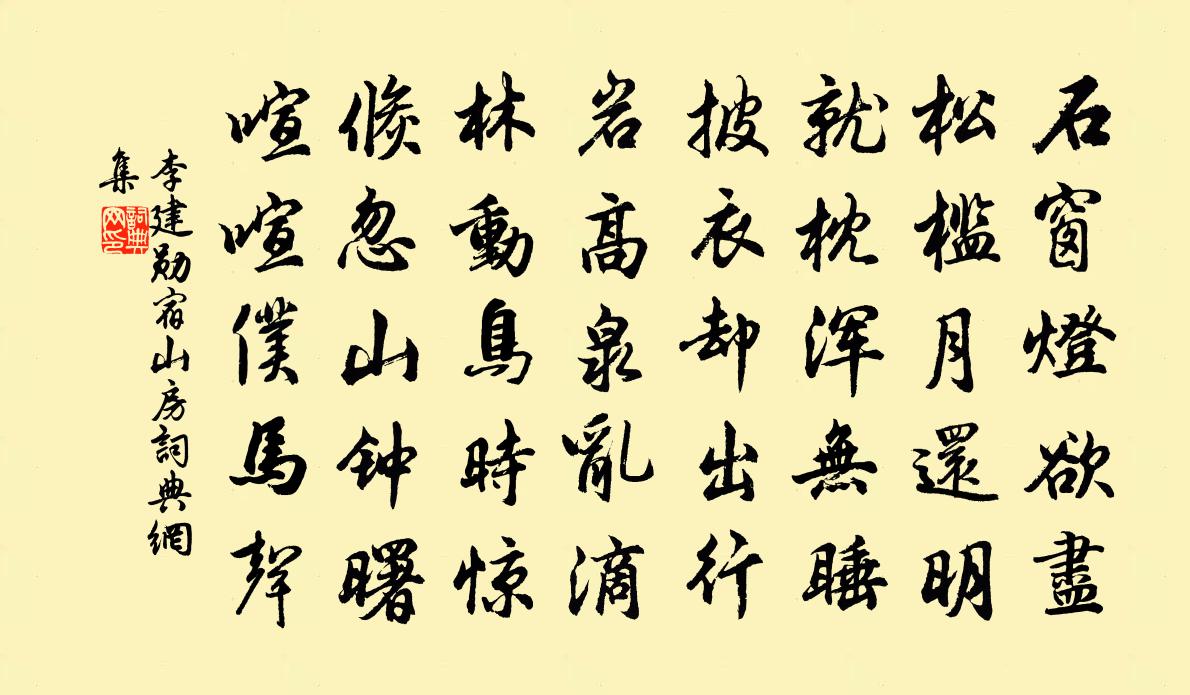 石窗燈欲盡
松檻月還明
就枕浑無睡
披衣却出行
岩高泉亂滴
林動鳥時惊
倏忽山钟曙
喧喧僕馬聲
李建勛宿山房詞典網
集
詞典
网印